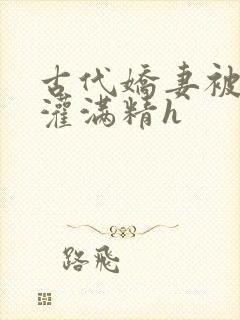 古代娇妻被
灌满精h
路飛